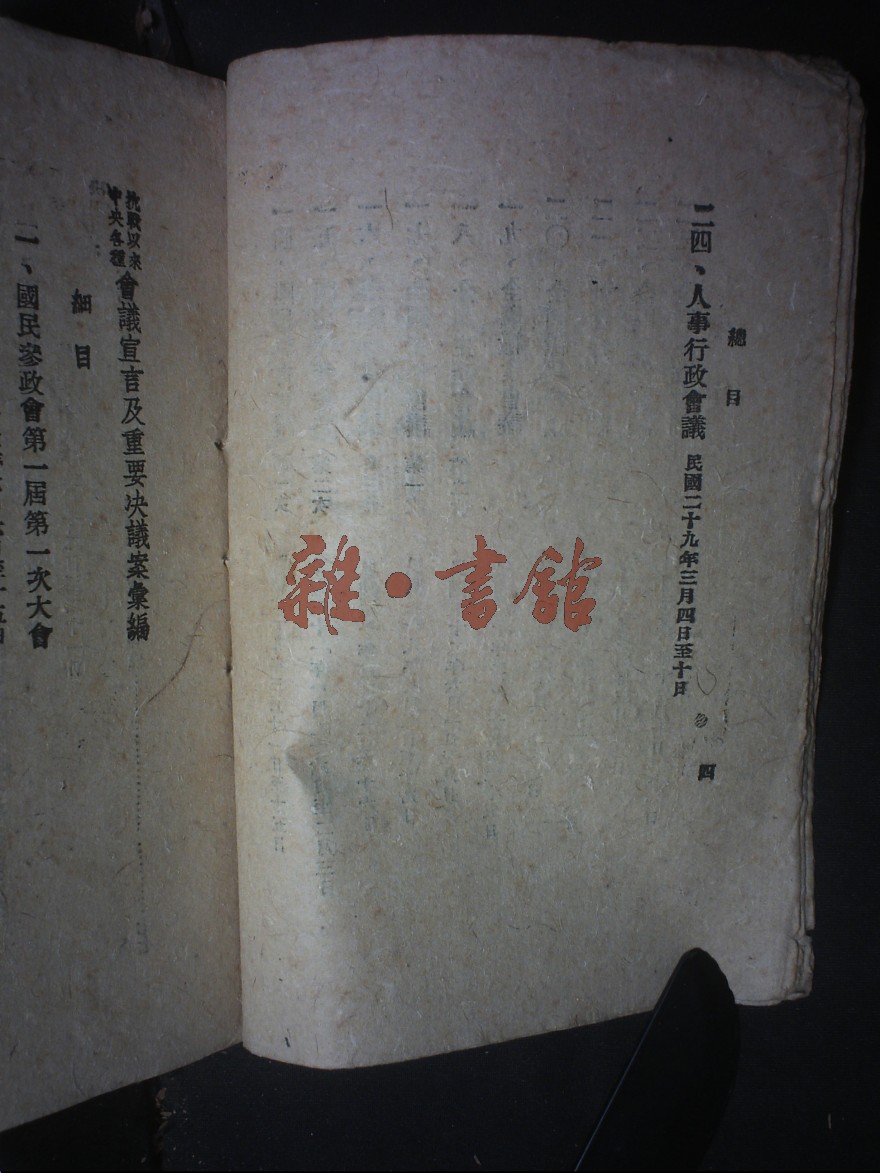 總目
四
二四、人事行政會議 民國二十九年三月四日至十日
抗戰以來中央各種會議宣言及重要決議案彙編
細目
一、國民參政會第一屆第一次大會
雜·書館